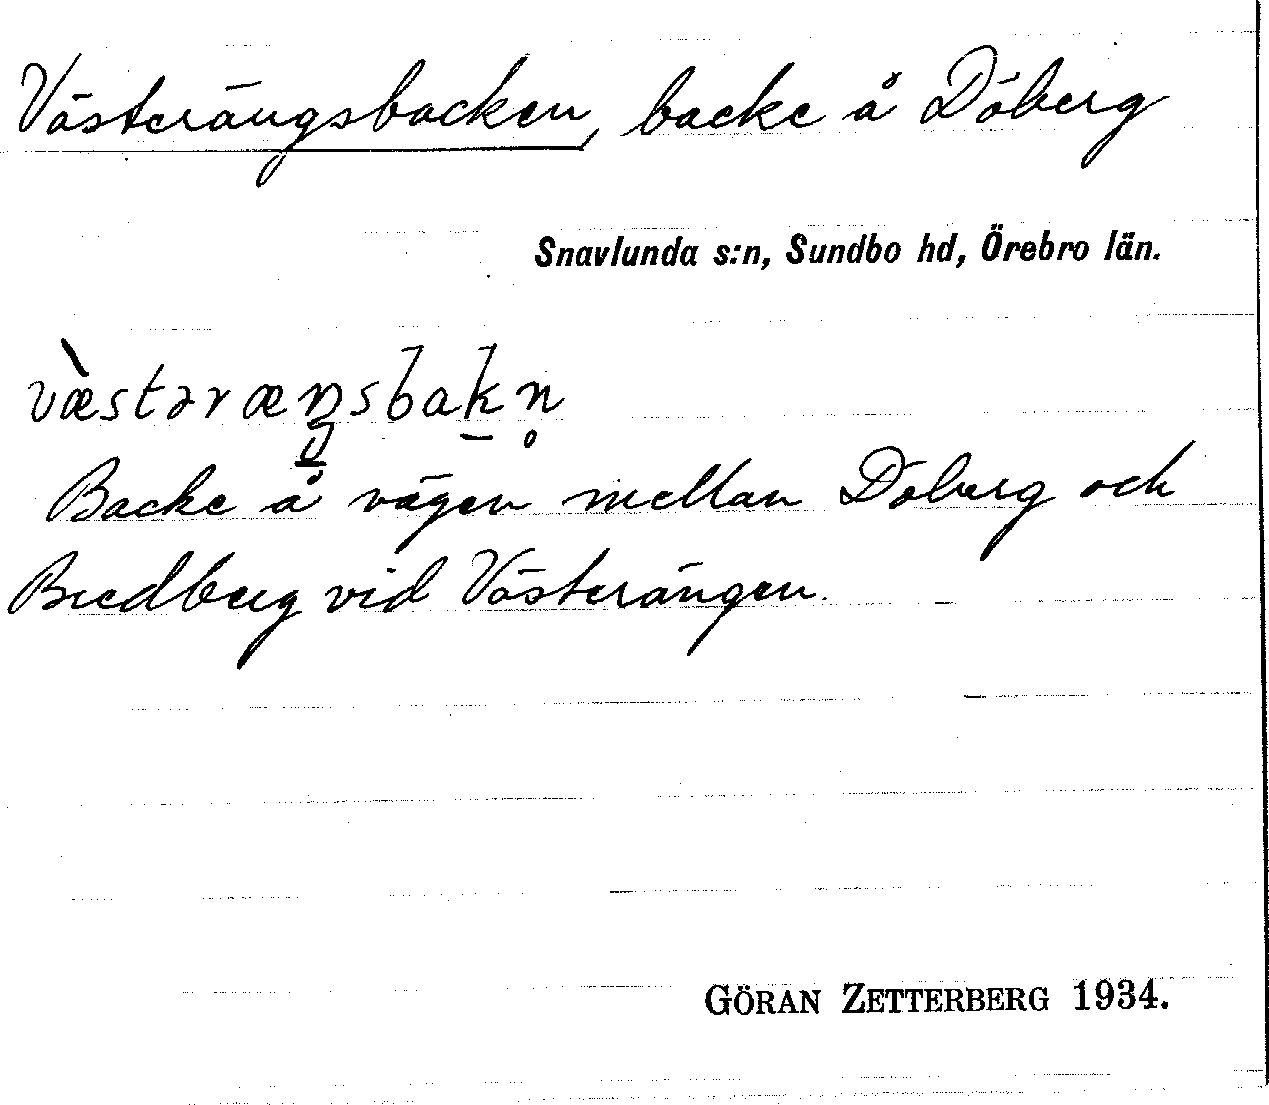 Västerängsbacken, backe å Döberg
Snavlunda s:n, Sundbo hd, Örebro län.
væ̀stəræŋ̱sbaḵn̥
Backe å vägen mellan Döberg och
Bredberg vid Västerängen.
GÖRAN ZETTERBERG 1934.